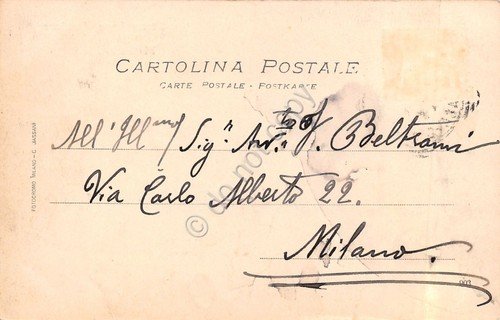 CARTOLINA POSTALE
CARTE POSTALE - POSTKARTE
All' Ill.mo Sig.r Avv.to V. Beltrami
Via Carlo Alberto 22.
Milano.
FOTOCROMO MILANO - C. JANSANI
© do not copy